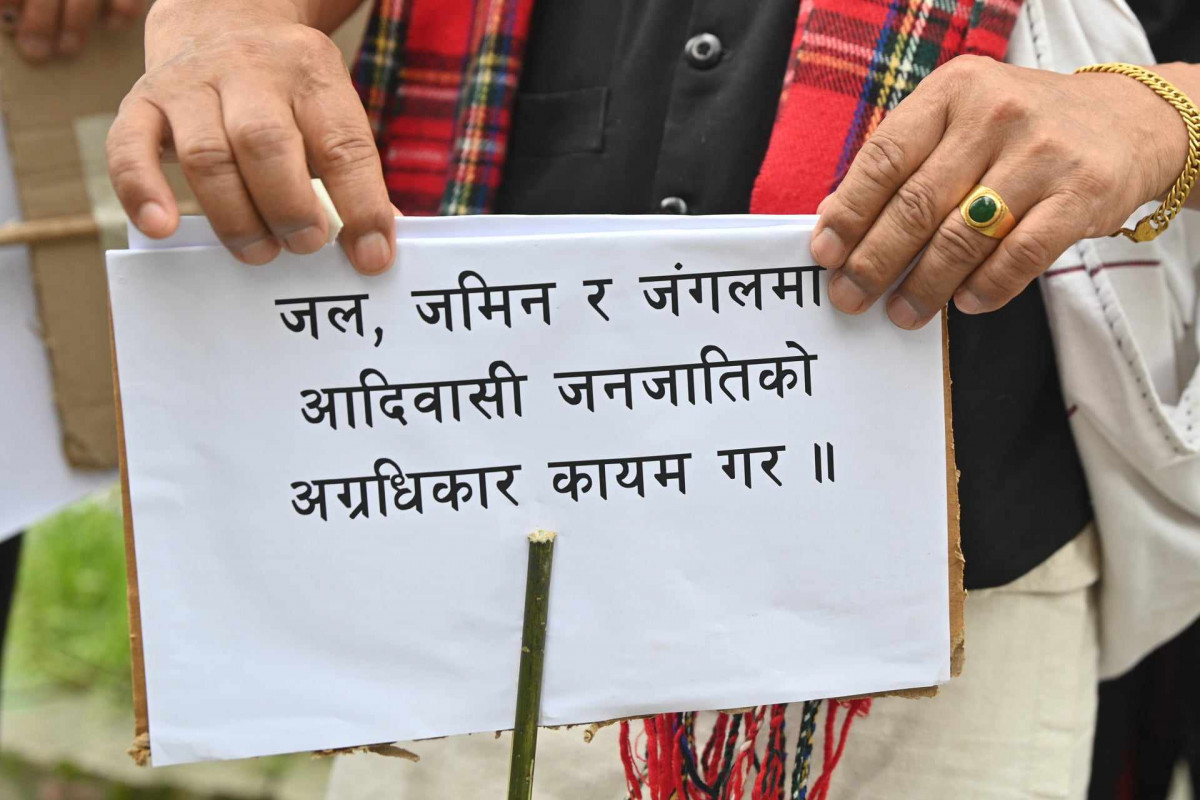 जल, जमिन र जंगलमा
आदिवासी जनजातिको
अग्रधिकार कायम गर ॥